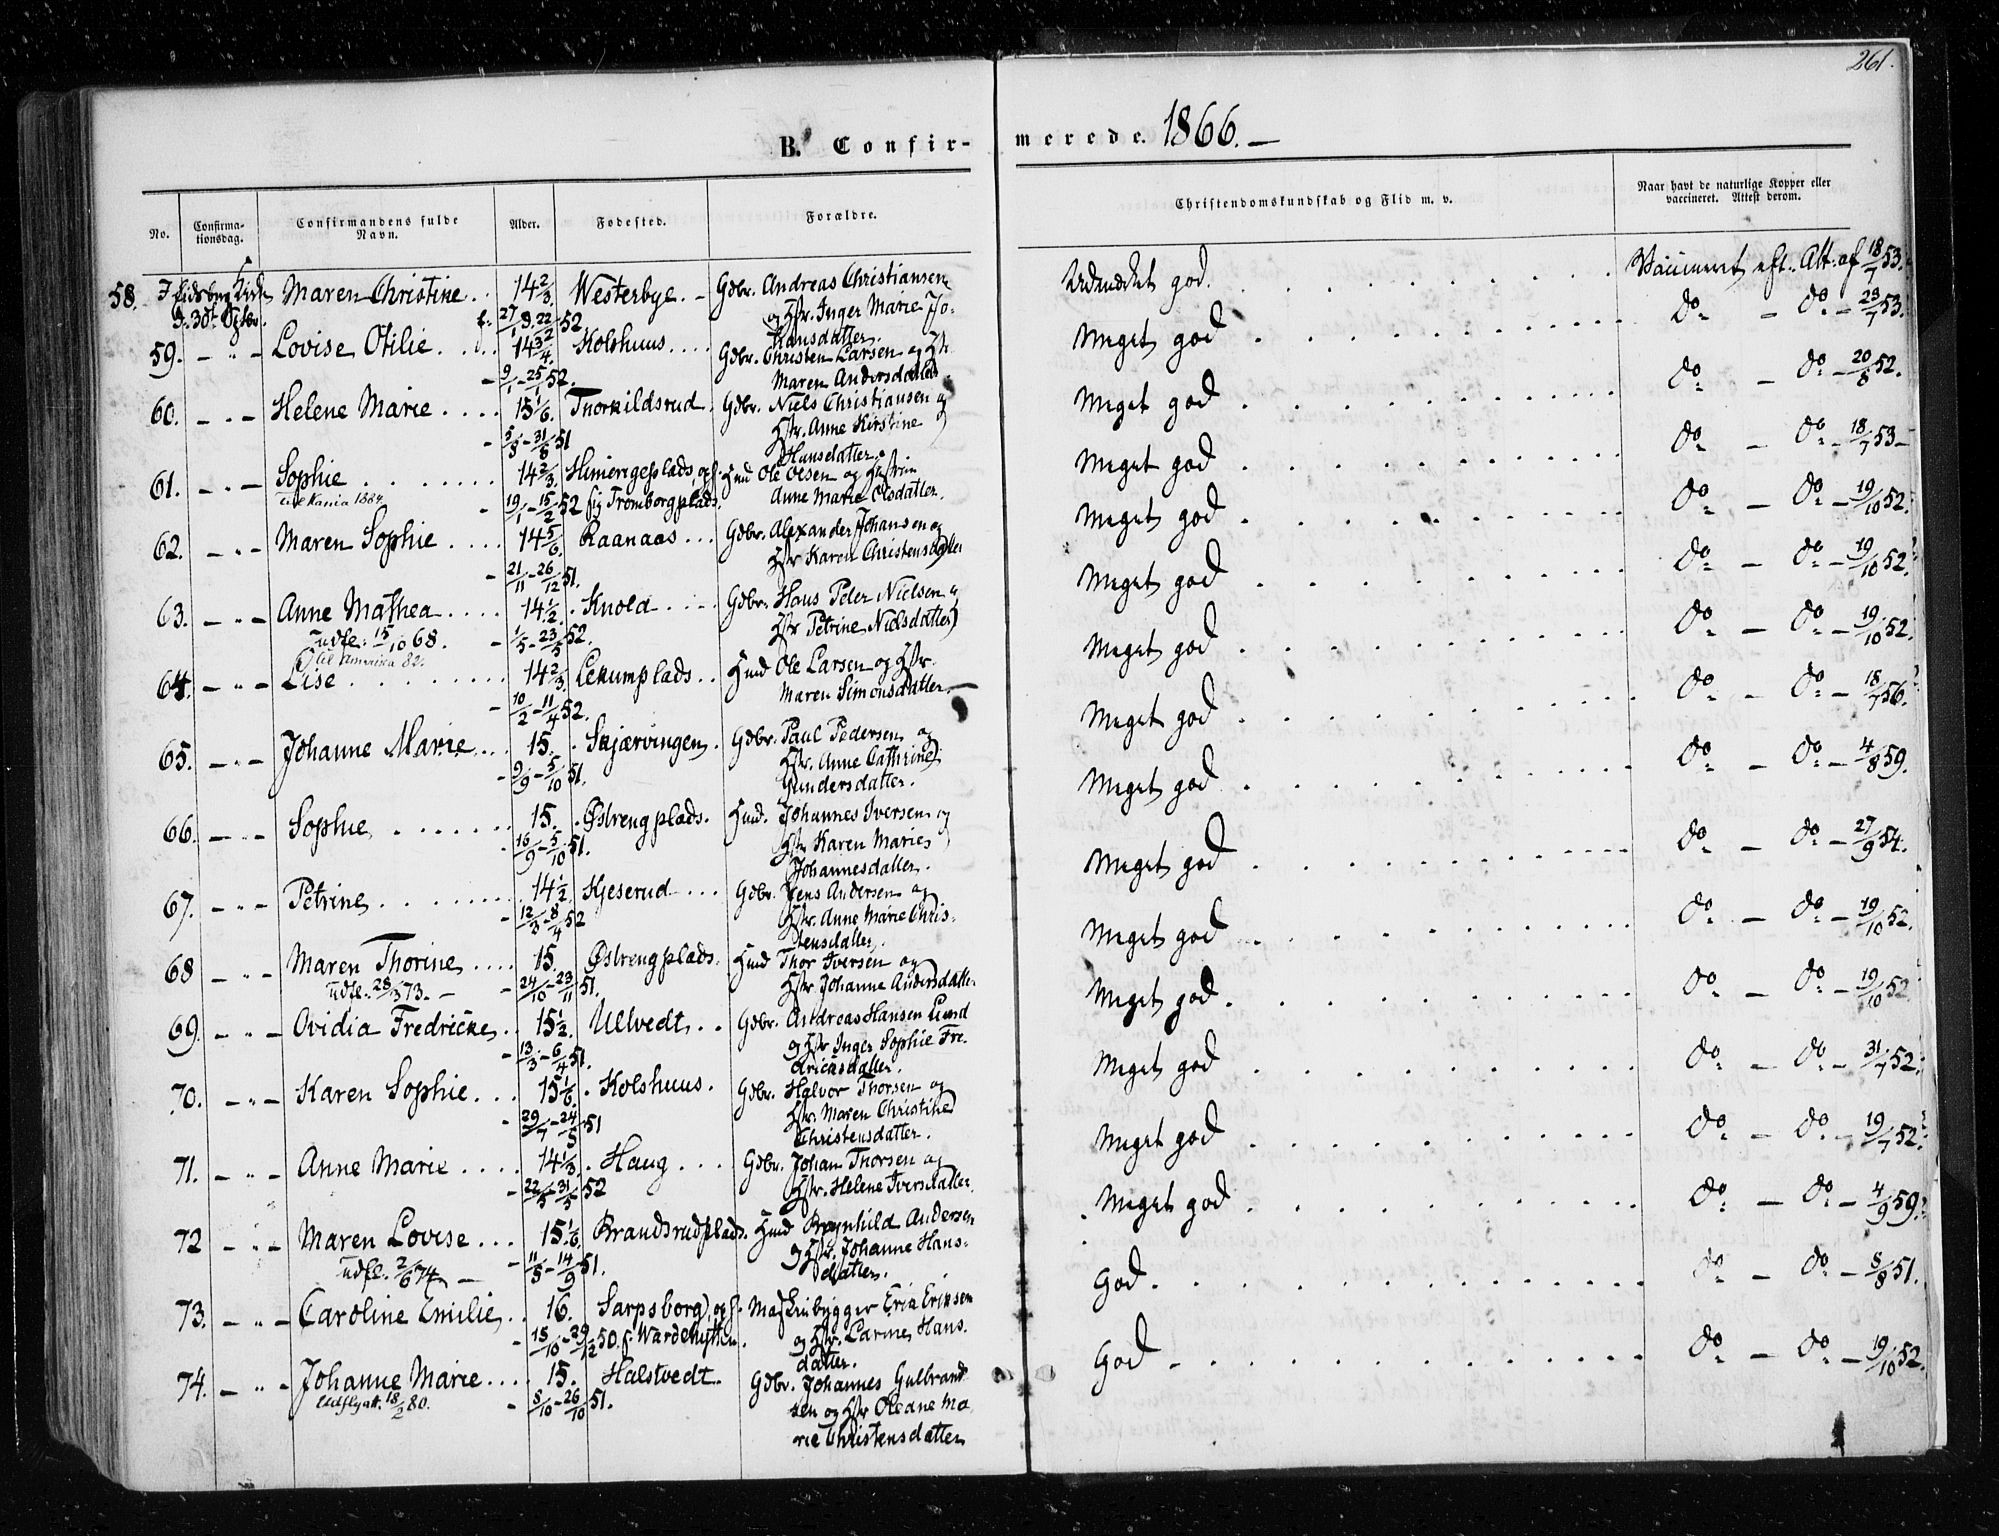 261.
B. Confir-
merede. 1866.—
No.
Confirma-
tionsdag.
Confirmandens fulde
Navn.
Alder.
Fødested.
Forældre.
Christendomskundskab og Flid m. v.
Naar havt de naturlige Kopper eller
vaccineret. Attest derom.
58. Maren Christine 14 2/3 Westerbye. Gdbr. Andreas Christiansen Udmærket god. Vaccineret eft. Att. af 18/7 53.
d. 30te Sptbr. f. 27/ 22/ 52 og Hstr. Inger Marie Jo-
hansdatter.
59. — " — Lovise Otilie 14 3/4 Kolshuus Gdbr. Christen Larsen og Meget god do — do — 23/7 53.
9/1 - 25/1 52. Maren Andersdatter
60. — " — Helene Marie 15 1/6 Thorkildsrud Gdbr. Niels Christiansen og Meget god do — do — 20/8 52.
5/8 - 31/8 51 Hstr. Anne Kirstine
Hansdatter.
61. — " — Sophie 14 2/3 Hmd Ole Olsen og Hustru Meget god do — do — 18/7 53 —
1884 19/1 - 15/2 52 Tromborgplads. Anne Marie Olsdatter.
62. — " — Maren Sophie 14 5/6 Raanaas Gdbr. Alexander Johansen og Meget god do — do — 19/10 52.
21/11 - 26/12 51. Hstr Karen Christensdatter
63. — " — Anne Mathea 14 1/2 Knold Gdbr. Hans Peter Nielsen og Meget god do — do — 19/10 52.
Udfl. 15/10 68. 1/5 - 23/5 52. Hstr Petrine Nielsdatter
til Amerika 82.
64. — " — Lise 14 2/3 Lekumplads Hmd Ole Larsen og Hstr. Meget god do — do — 19/10 52.
10/2 - 11/4 52. Maren Simonsdatter
65. — " — Johanne Marie 15. Skjærvingen. Gdbr. Paul Pedersen og Meget god do — do — 18/7 56.
9/9 - 5/10 51. Hstr. Anne Cathrine
Gundersdatter.
66. — " — Sophie 15. Østrengplads. Hmd. Johannes Iversen og Meget god do — do — 4/8 59.
16/9 - 5/10 51. Hstr Karen Marie
Johannesdatter.
67. — " — Petrine 14 1/2 Kjeserud Gdbr. Jens Andersen og Meget god do — do — 27/9 54.
12/3 - 8/4 52 Hstr. Anne Marie Chris-
tensdatter.
68 — " — Maren Thorine 15. Østrengplads. Hmd Thor Iversen og Meget god do — do — 19/10 52.
Udfl. 28/3 73. — 24/10 - 23/11 51. Hstr Johanne Andersdatter
69. — " — Ovidia Fredricke 15 1/2 Ulvedt Gdbr. Andreas Hansen Lund Meget god. do — do — 19/10 52
13/3 - 6/4 51. og Hstr Inger Sophie Fre-
dricksdatter.
70. — " — Karen Sophie 15 1/6 Kolshuus. Gdbr. Halvor Thorsen og Meget god do — do — 31/7 52.
29/7 - 24/8 51 Hstr. Maren Christine
Christensdatter.
71. — " — Anne Marie 14 1/3 Haug Gdbr. Johan Thorsen og Meget god do — do — 19/7 52.
22/5 - 31/5 52 Hstr. Helene Iversdatter.
72 — " — Maren Lovise 15 1/6 Brandsrudplads. Hmd Brynhild Andersen Meget god do — do — 4/9 59.
Udfl. 2/6 74 — 11/8 - 14/9 51. og Hstr. Johanne Hans-
datter.
73. — " — Caroline Emilie 16. Sarpsborg, Maskinbygger Erik Eriksen God do — do — 8/8 51.
15/10 - 29/12 50. og Hstr. Larine Hans-
datter.
74. — " — Johanne Marie 15. Halstvedt. Gdbr. Johannes Gulbrand- God do — do — 19/10 52.
Udflytt. 18/2 80. 8/10 - 26/10 51. sen og Hstr Oleane Ma-
rie Christensdatter